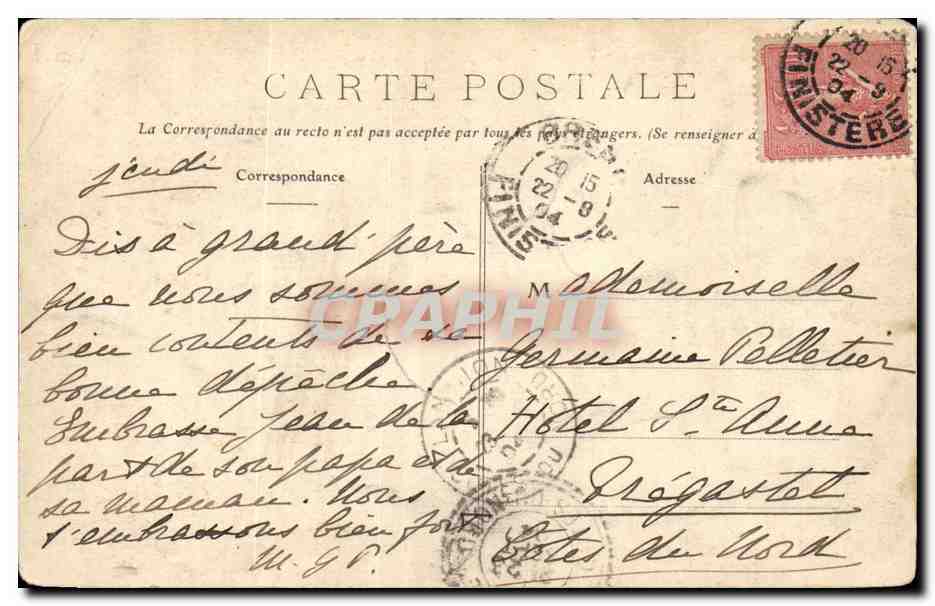 CARTE POSTALE
La Correspondance au recto n'est pas acceptée par tous les pays étrangers. (Se renseigner à
Correspondance
Adresse
jeudi
Dis à grand'père
que nous sommes
bien contents de sa
bonne dépêche.
Embrasse Jean de la
part de son papa et de
sa maman. Nous
t'embrassons bien fort
M. G. P.
Mademoiselle
Germaine Pelletier
Hôtel Ste Anne
Trégastel
Côtes du Nord
20 15
22 - 9
04
FINISTERE
20 15
22 - 9
04
FINIS
CPARHIL